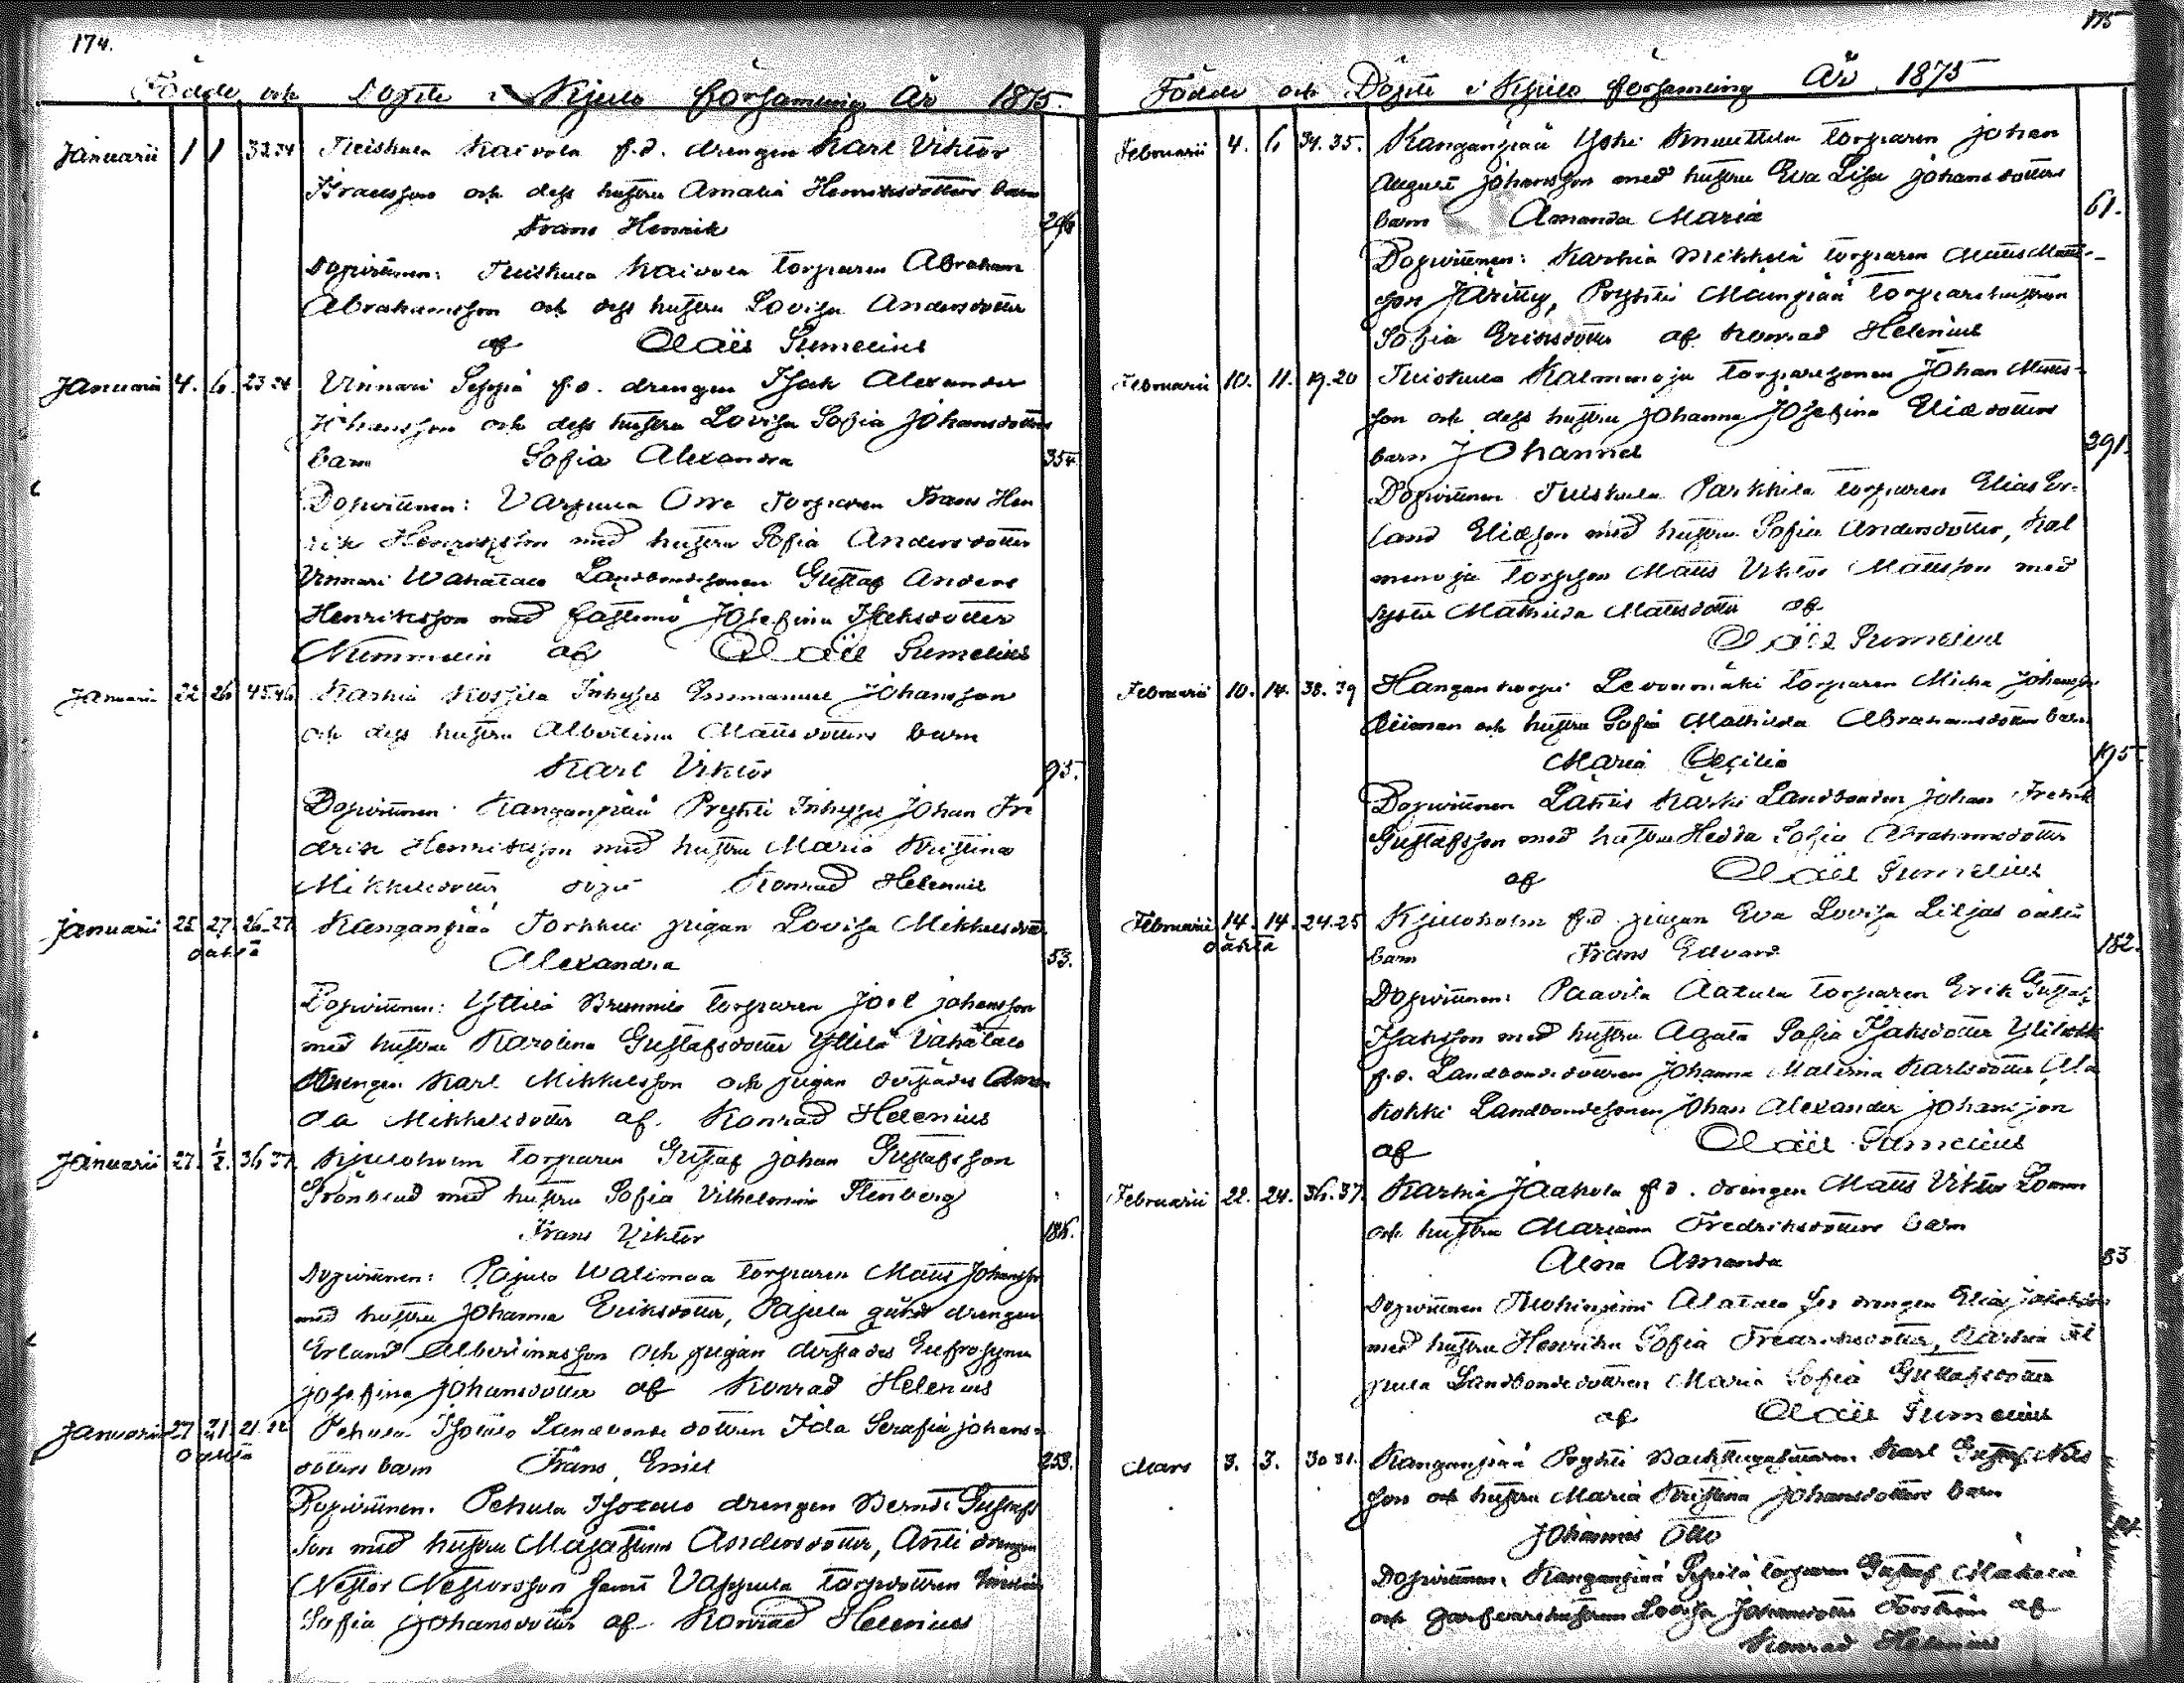 174.
Födde och Döpte i Kjulo församling År 1875.
Januarii 1 1 33.34 Tuiskula Kaivola f.d. drengen Karl Viktor
Israelsson och dess hustru Amalia Henriksdotters barn
Frans Henrik 296
Dopvittnen: Tuiskula Kaivola torparen Abraham
Abrahamsson och dess hustru Lovisa Andersdotter
af Olaus Sumelius
Januarii 4. 6. 23.24 Vinnari Seppä f.d. drengen Isak Alexander
Johansson och dess hustru Lovisa Sofia Johansdotters
barn Sofia Alexandra 354
Dopvittnen: Vargula Orre Torparen Frans Hen
rik Henriksson med hustru Sofia Andersdotter
Vinnari Wahatalo Landbondesonen Gustaf Anders
Henriksson med fästemö Josefina Isaksdotter
Nummelin af Olaus Sumelius
Januarii 22 26 45.46 Karhia Koskela Inhyses Emmanuel Johansson
och dess hustru Albertina Mattsdotters barn
Karl Viktor 93.
Dopvittnen: Kanganpää Pryhti Inhyses Johan Fre
drik Henriksson med hustru Maria Kristina
Mikkelsdotter döpt Konrad Helenius
Januarii 25 27. 26.27 Kanganpää Torkkeli pigan Lovisa Mikkelsdott.
oäkta Alexandra 53.
Dopvittnen: Yttilä Brunnila torparen Joel Johansson
med hustru Karolina Gustafsdotter Yttilä Vähätalo
drengen Karl Mikkelsson och pigan derstädes Aman
da Mikkelsdotter af Konrad Helenius
Januarii 27. 1/2. 36.37. Kjuloholm torparen Gustaf Johan Gustafsson
Grönblad med hustru Sofia Vilhelmina Stenberg
Frans Viktor 186.
Dopvittnen: Pajula Walimaa torparen Matts Johansson
med hustru Johanna Eriksdotter, Pajula gård drengen
Erland Albertinasson och pigan derstädes Eufrosyna
Josefina Johansdotter af Konrad Helenius
Januarii 27 31 21.22 Pehula Isotalo Landbonde dottren Ida Serafia Johans-
oäkta dotters barn Frans Emil 253.
Dopvittnen: Pehula Isotalo drengen Berndt Gustafs
son med hustru Majastina Andersdotter, Anti drengen
Nestor Nestorsson samt Vappula torpdottren
Sofia Johansdotter af Konrad Helenius
175
Födde och Döpte i Kjulo församling År 1875
Februarii 4. 6 34.35. Kanganpää Yski Knuuttila torparen Johan
August Johansson med hustru Eva Lisa Johansdotters
barn Amanda Maria 61.
Dopvittnen: Karhia Mikkola torparen Matts Matts-
son Järitty, Pryhti Mäenpää torparehustrun
Sofia Eriksdotter af Konrad Helenius
Februarii 10. 11. 19.20 Tuiskula Kalmenoja torparesonen Johan Matts-
son och dess hustru Johanna Josefina Eliædotters
barn Johannes 291.
Dopvittnen Tuiskula Parkkila torparen Elias Er-
land Eliæson med hustru Sofia Andersdotter, Kal
menoja torpson Matts Viktor Mattsson med
syster Mathilda Mattsdotter af
Olaus Sumelius
Februarii 10. 14. 38.39 Hangankorpi Levonmäki torparen Micha Johansson
och hustru Sofia Mathilda Abrahamsdotters barn
Maria Cecilia 195
Dopvittnen Lähtis Karhi Landbonden Johan Fredrik
Gustafsson med hustru Hedda Sofia Abrahamsdotter
af Olaus Sumelius
Februarii 14. 14. 24.25 Kjuloholm f.d. pigan Eva Lovisa Liljas oäkta
oäkta barn Frans Edvard 182.
Dopvittnen: Paavila Aatula torparen Erik Gustaf
Isaksson med hustru Agata Sofia Isaksdotter
f.d. Landbondedottren Johanna Malvina Karlsdotter Ala
Kokki Landbondesonen Johan Alexander Johansson
af Olaus Sumelius
Februarii 22. 24. 36.37. Karhia Jaakola f.d. drengen Matts Viktor
och hustru Mariana Fredriksdotters barn
Alma Amanda 83
Dopvittnen Alatalo drengen Elias
med hustru Henrika Sofia Fredriksdotter, Karhia
pula Landbondedottren Maria Sofia Gustafsdotter
af Olaus Sumelius
Mars 3. 3. 30.31. Kanganpää Pryhti Backstugusittaren Karl Gustaf Nils
son och hustru Maria Kristina Johansdotters barn
Johannes Otto
Dopvittnen: Kanganpää Seppälä torparen Gustaf
och hustrun Lovisa Johansdotter af
Konrad Helenius